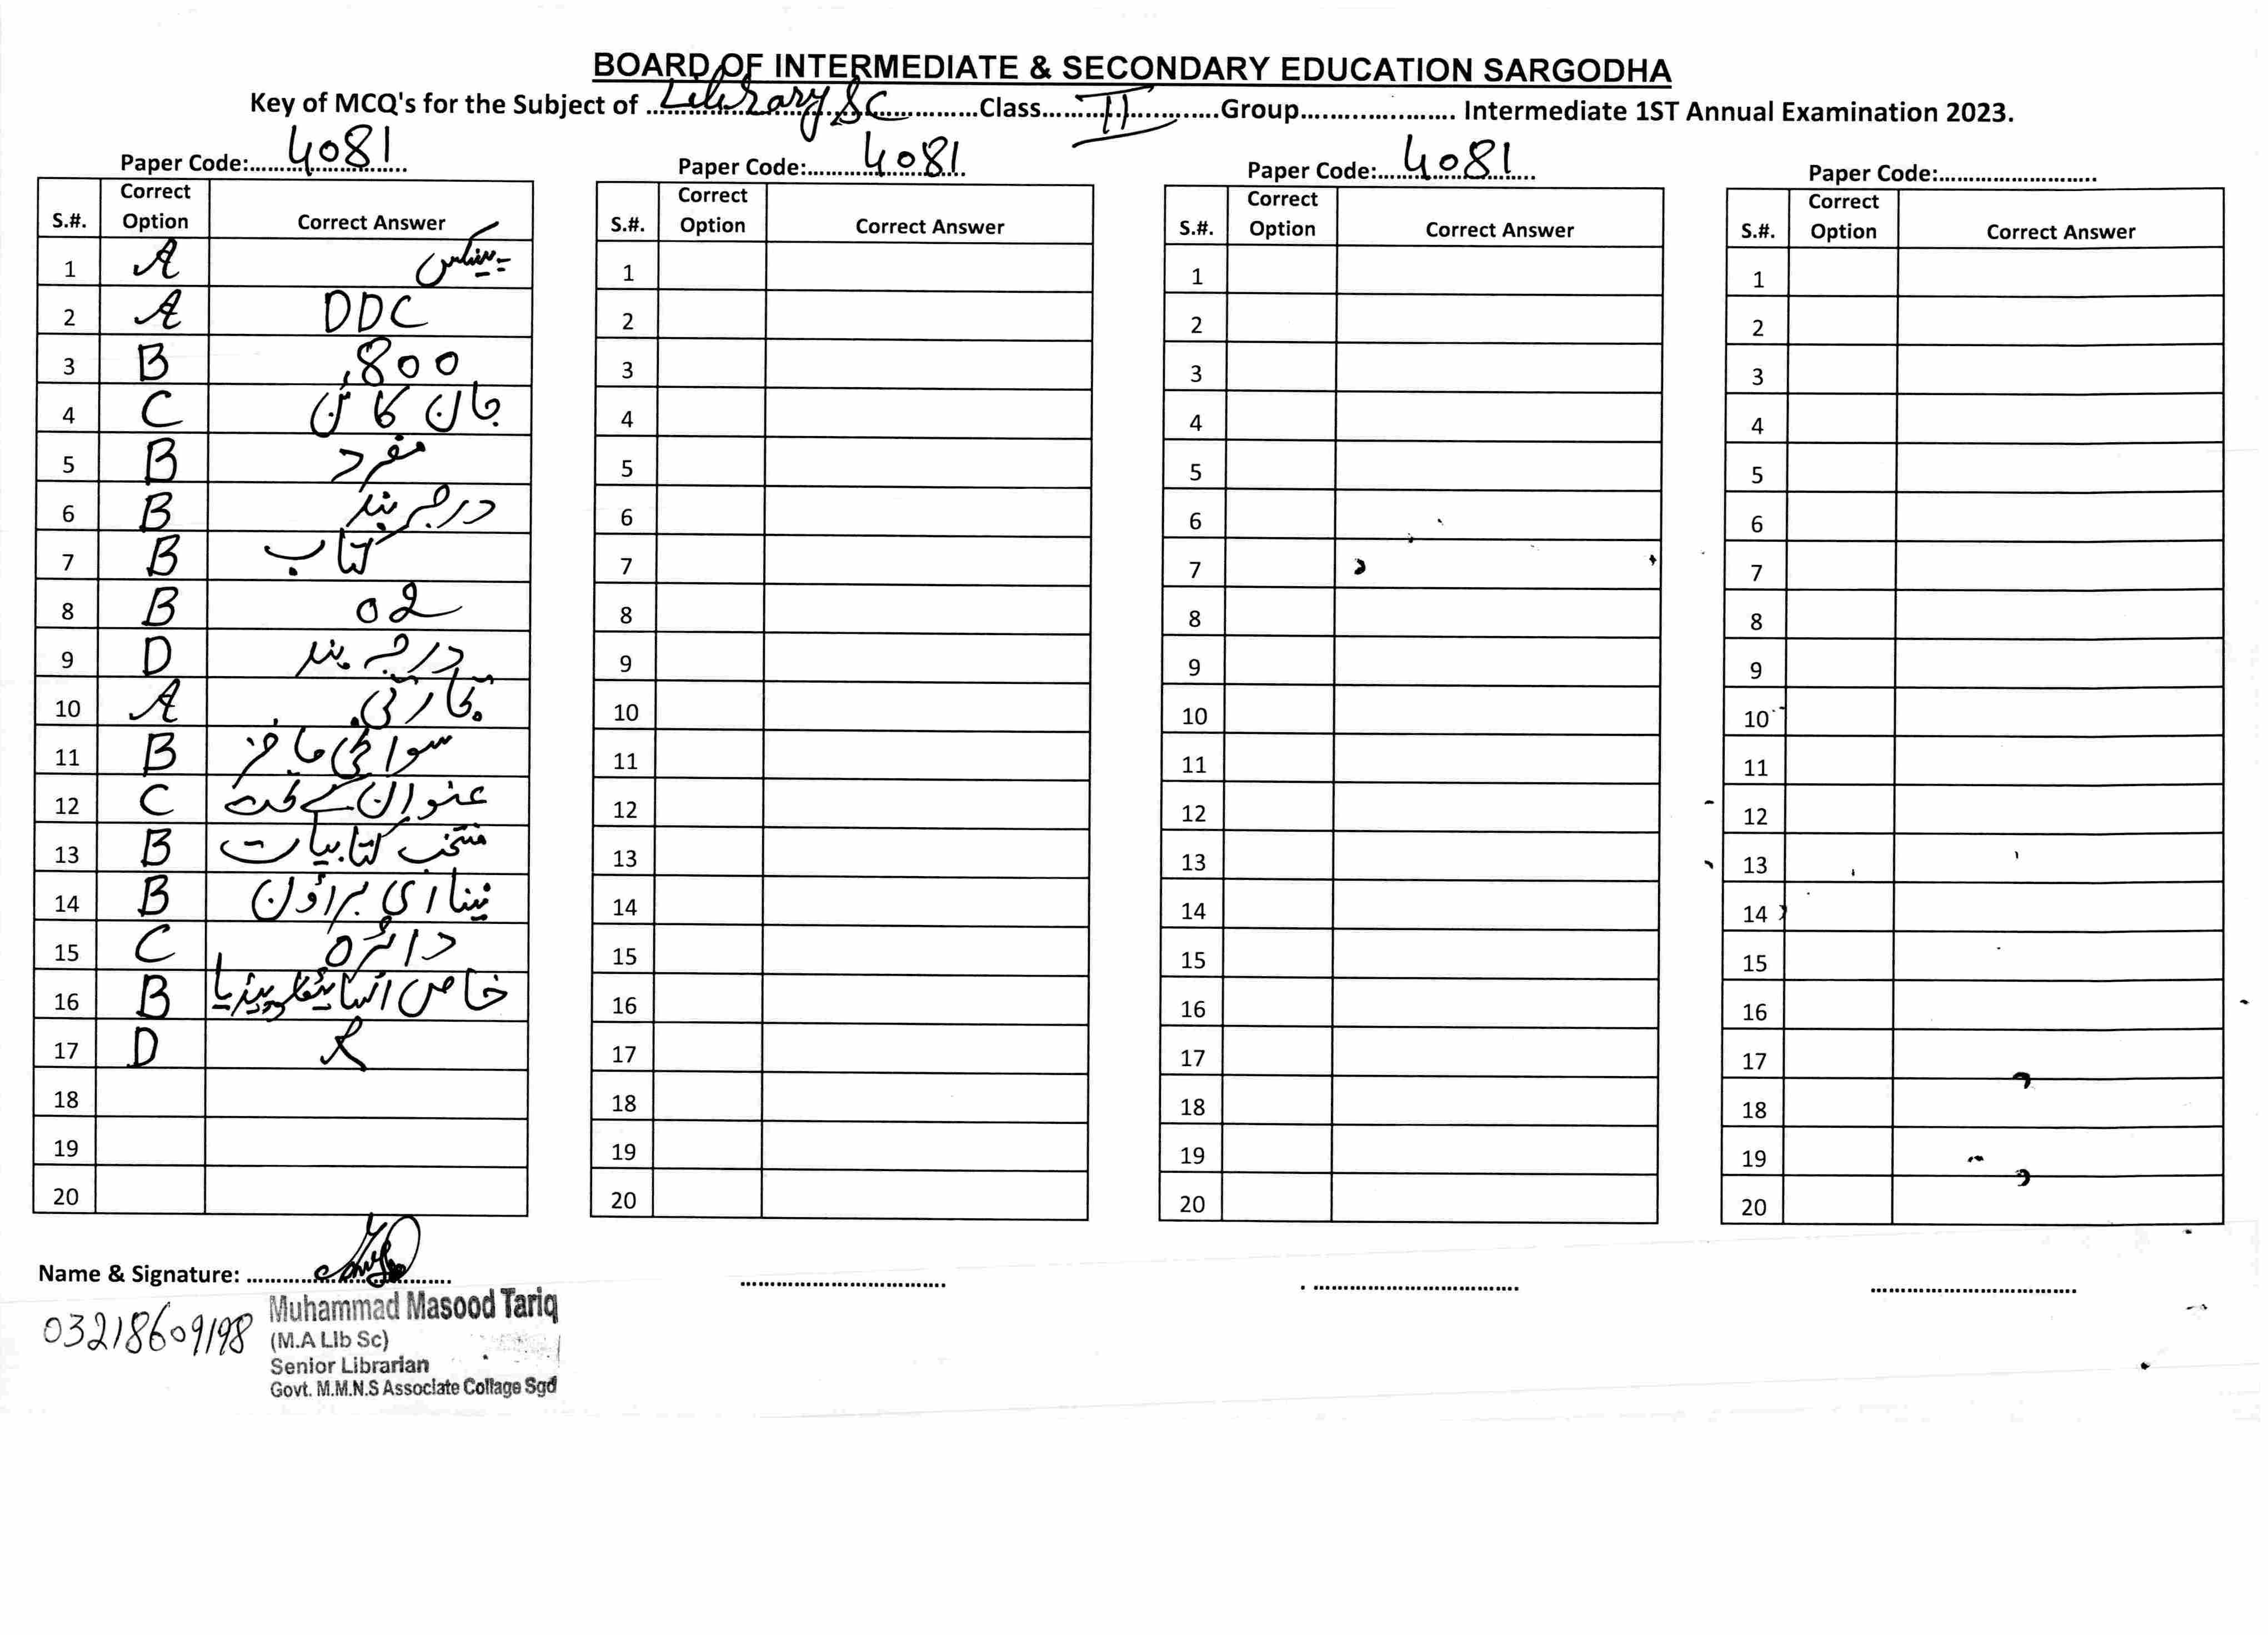 BOARD OF INTERMEDIATE & SECONDARY EDUCATION SARGODHA
Key of MCQ's for the Subject of Library Sc Class II Group Intermediate 1ST Annual Examination 2023.
Paper Code: 4081
S.#. Correct Option Correct Answer
1 A
2 A DDC
3 B 800
4 C جان کا
5 B مفرد
6 B درجہ بند
7 B کتاب
8 B 02
9 D درجہ بند
10 A
11 B سوانحی ماخذ
12 C عنوان کے تحت
13 B منتخب کتابیات
14 B ای براؤن
15 C دائرہ
16 B خاص انسائیکلوپیڈیا
17 D R
18
19
20
Paper Code: 4081
S.#. Correct Option Correct Answer
1
2
3
4
5
6
7
8
9
10
11
12
13
14
15
16
17
18
19
20
Paper Code: 4081
S.#. Correct Option Correct Answer
1
2
3
4
5
6
7
8
9
10
11
12
13
14
15
16
17
18
19
20
Paper Code:
S.#. Correct Option Correct Answer
1
2
3
4
5
6
7
8
9
10
11
12
13
14
15
16
17
18
19
20
Name & Signature:
03218609198
Muhammad Masood Tariq
(M.A Lib Sc)
Senior Librarian
Govt. M.M.N.S Associate Collage Sgd